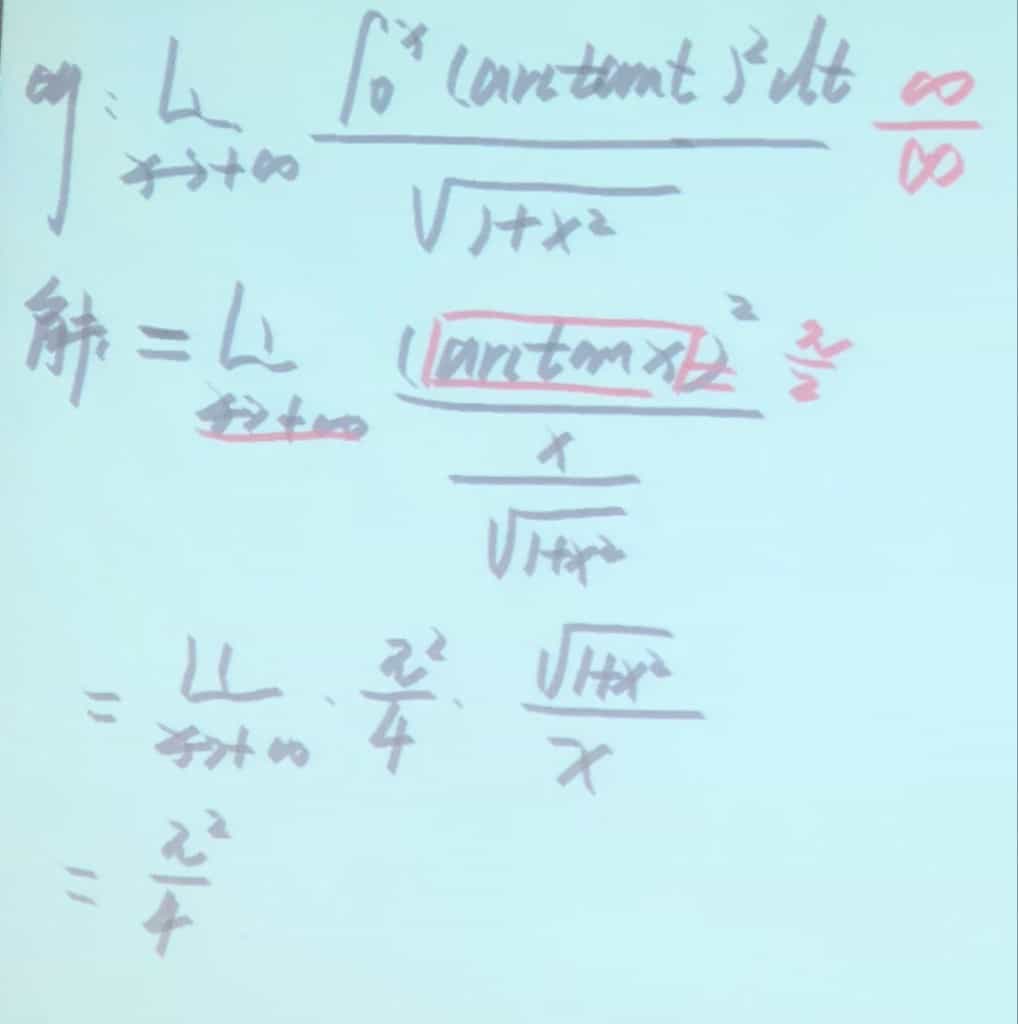 例: L x→+∞ ∫₀ˣ (arctant)² dt / √(1+x²) ∞/∞
解 = L x→+∞ (arctan x)² / (x / √(1+x²)) π/2
= L x→+∞ · π²/4 · √(1+x²) / x
= π²/4